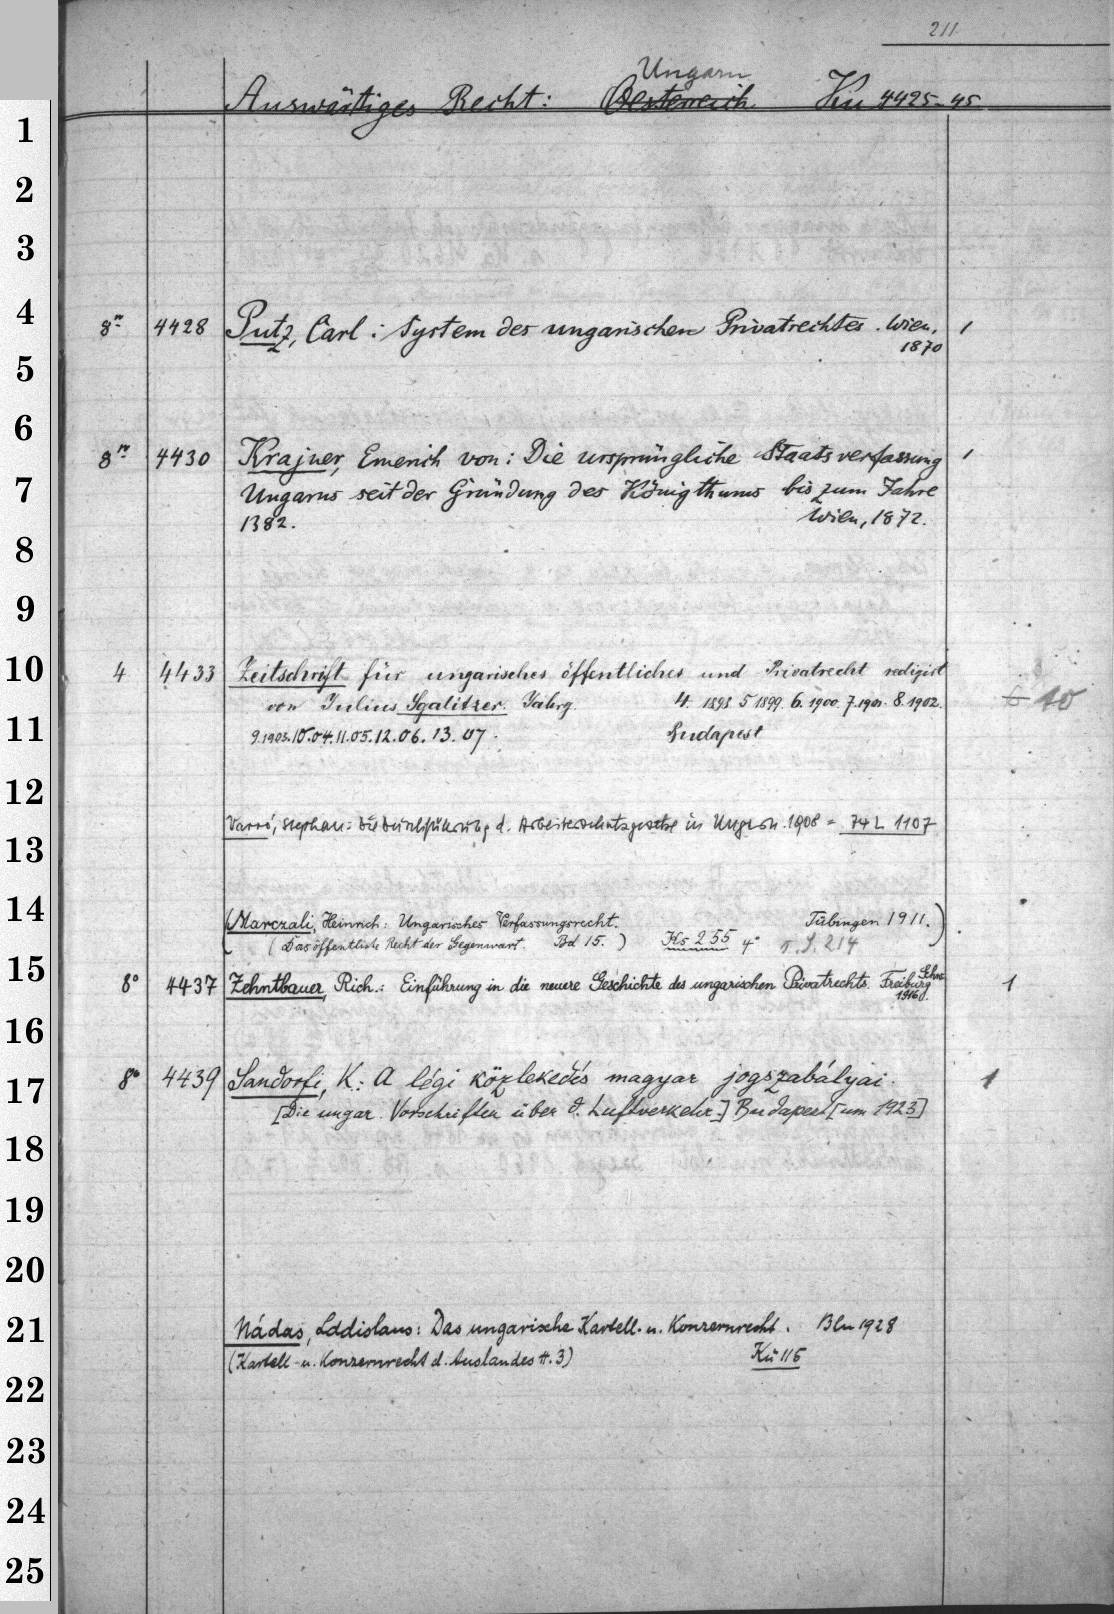 211
Ungarn
Auswärtiges Recht: Oesterreich Ku 4425-45
1
2
3
4
8° 4428 Putz, Carl: System des ungarischen Privatrechtes. Wien, 1
1870
5
6
8° 4430 Krajner, Emerich von: Die ursprüngliche Staatsverfassung 1
7
Ungarns seit der Gründung des Königthums bis zum Jahre
1382. Wien, 1872.
8
9
10
4 4433 Zeitschrift für ungarisches öffentliches und Privatrecht redigirt
von Julius Sgalitzer. Jahrg. 4. 1898. 5 1899. 6. 1900. 7. 1901. 8. 1902. 10
11
9. 1903. 10. 04. 11. 05. 12. 06. 13. 07. Budapest
12
Varró, Stephan: Die Durchführung d. Arbeiterschutzgesetze in Ungarn. 1908 = 74 L 1107
13
14
(Marczali, Heinrich: Ungarisches Verfassungsrecht. Tübingen 1911.)
(Das öffentliche Recht der Gegenwart. Bd 15.) Ks 255 4° S. 214
15
8° 4437 Zehntbauer, Rich.: Einführung in die neuere Geschichte des ungarischen Privatrechts. Freiburg Schw. 1
1916
16
17
8° 4439 Sandorfi, K.: A légi közlekedés magyar jogszabályai. 1
[Die ungar. Vorschriften über d. Luftverkehr.] Budapest [um 1923]
18
19
20
21
Nádas, Laddislaus: Das ungarische Kartell- u. Konzernrecht. Bln 1928
(Kartell- u. Konzernrecht d. Auslandes H. 3) Kü 115
22
23
24
25